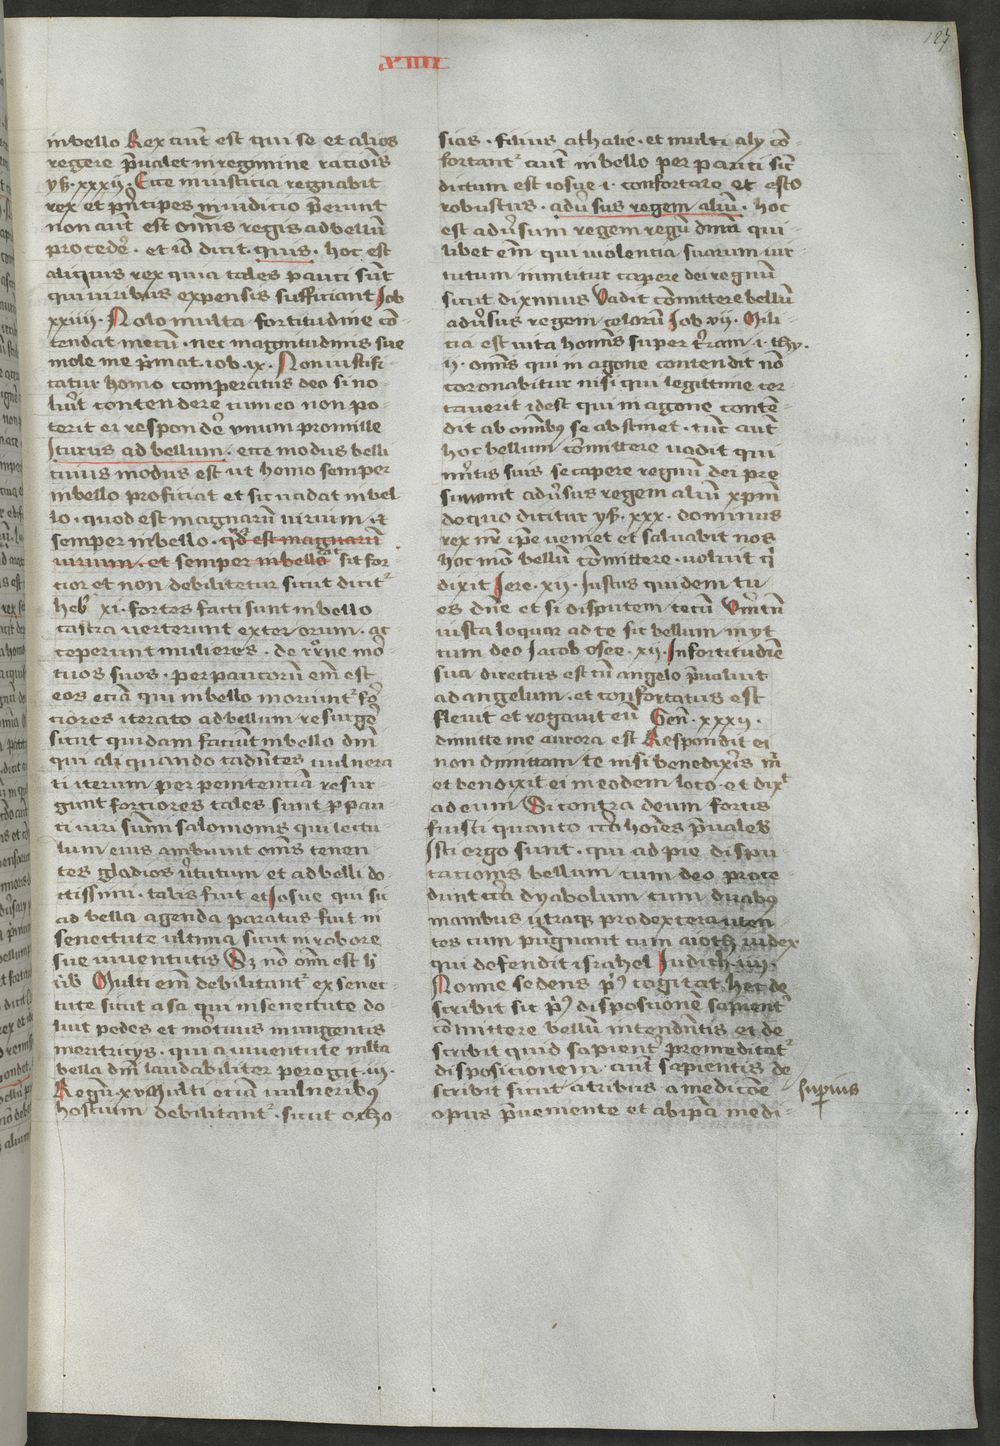 127
XIIII
in bello Rex aut̄ est qui se et alios
regere p̄ualet in regimine racio̅is
ys̄. xxxii. Ecce in iusticia regnabit
rex et p̄ncipes in iudicio p̄erunt
non aut̄ est om̄is regis ad bellū
proceder̄. et iō dicit. quis. hoc est
aliquis rex quia tales pauci sūt
qui viribus expensis sufficiant Job
xxiiii. Nolo multa fortitudine cō-
tendat mecū. nec magnitudinis sue
mole me p̄mat. iob. ix. Non iustifi
catur homo comparatus deo si uo
lu̅it contendere cum eo non po-
terit ei responder̄ vnum pro mille
Iturus ad bellum. ecce modus belli
cuius modus est ut homo semper
in bello proficiat et sic uadat in bel
lo. quod est magnarū virium. et
semper in bello. qd̄ est magnarū
virium. et semper in bello sit for-
cior et non debilitetur sicut dicit᷑
heb̄ xi. fortes facti sunt in bello
castra verterunt exterorum. ac
ceperunt mulieres. de r̄r̄ne mor
tuos suos. per paucorū em̄ est
eos eciā qui in bello moriunt᷑ for
ciores iterato ad bellum resurger̄
sicut quidam faciūt in bello dn̄i
qui aliquando cadentes vulnera
ti iterum per penitenciā resur-
gunt forciores tales sunt p̄ pau-
ci viri sūmi salomonis qui lectu-
lum eius ambiunt om̄s tenen-
tes gladios v̄tutum et ad belli do-
ctissimi. talis fuit et Josue qui sic
ad bella agenda paratus fuit in
senectute ultima sicut in robore
sue iuuentutis Sz nō om̄ est h̄
ub̄ Multi em̄ debilitant᷑ ex senec-
tute sicut asa qui in senectute do
luit pedes et mortuus in ungentis
meretricys. qui a iuuentute m̄lta
bella dn̄i laudabiliter peregit. iii.
Regū. xv Multi eciā vulneribus
hostium debilitant᷑. sicut ocho-
sias. filius athalie. et multi aly cō-
fortant᷑ aut̄ in bello per pauci sic̄
dictum est iosue. i. confortare et esto
robustus. aduersus regem aliū. hoc
est aduersum regem regū dn̄m qui
libet em̄ qui violencia suarum uir
tutum innititur capere dei regnū
sicut diximus Vadit cōmittere bellū
aduersus regem celorū Job. vii. Mili
cia est vita hominis super terram. i. thy.
ii. om̄is qui in agone contendit nō
coronabitur nisi qui legittime cer
tauerit idest qui in agone conten
dit ab omībus se abstinet. tūc aut̄
hoc bellum cōmittere uadit qui
meritis suis se capere regnū dei pre
sumunt aduersus regem aliū xp̄m
de quo dicitur ys̄. xxx. dominus
rex nr̄ ip̄e veniet et saluabit nos
hoc mō bellū cōmittere. voluit q̄
dixit Jere. xii. Justus quidem tu
es dn̄e et si disputem tecū Verūt̄n
iusta loquar ad te sic bellum inyt
cum deo Jacob osee. xii. In fortitudine
sua directus est cū angelo p̄ualuit
ad angelum. et confortatus est
fleuit et rogauit eū Gen̄. xxxii.
dimitte me aurora est Respondit ei
non dimittam te nisi benedixeris m̄
et bendixit ei in eodem loco. et dix̄
ad eum Si contra deum fortis
fuisti quanto ctr̄a hoīes p̄ualeb̄
Isti ergo sunt. qui ad pie dispu
tacionis bellum cum deo proce
dunt ctr̄a dyabolum cum duabus
manibus utraqz pro dextera uten
tes cum pugnant cum aioth iudex
qui defendit israhel Judith. iii.
Nonne sedens p̄us cogitat, hec de
scribit sic p̄us disposicionē sapient᷑
cōmittere bellū intendentis et de
scribit quid sapient᷑ premeditat᷑
disposicionem. aut̄ sapientis de
scribit sicut a tribus a medicōe superius
opus p̄ueniente et ab ip̄a medi-